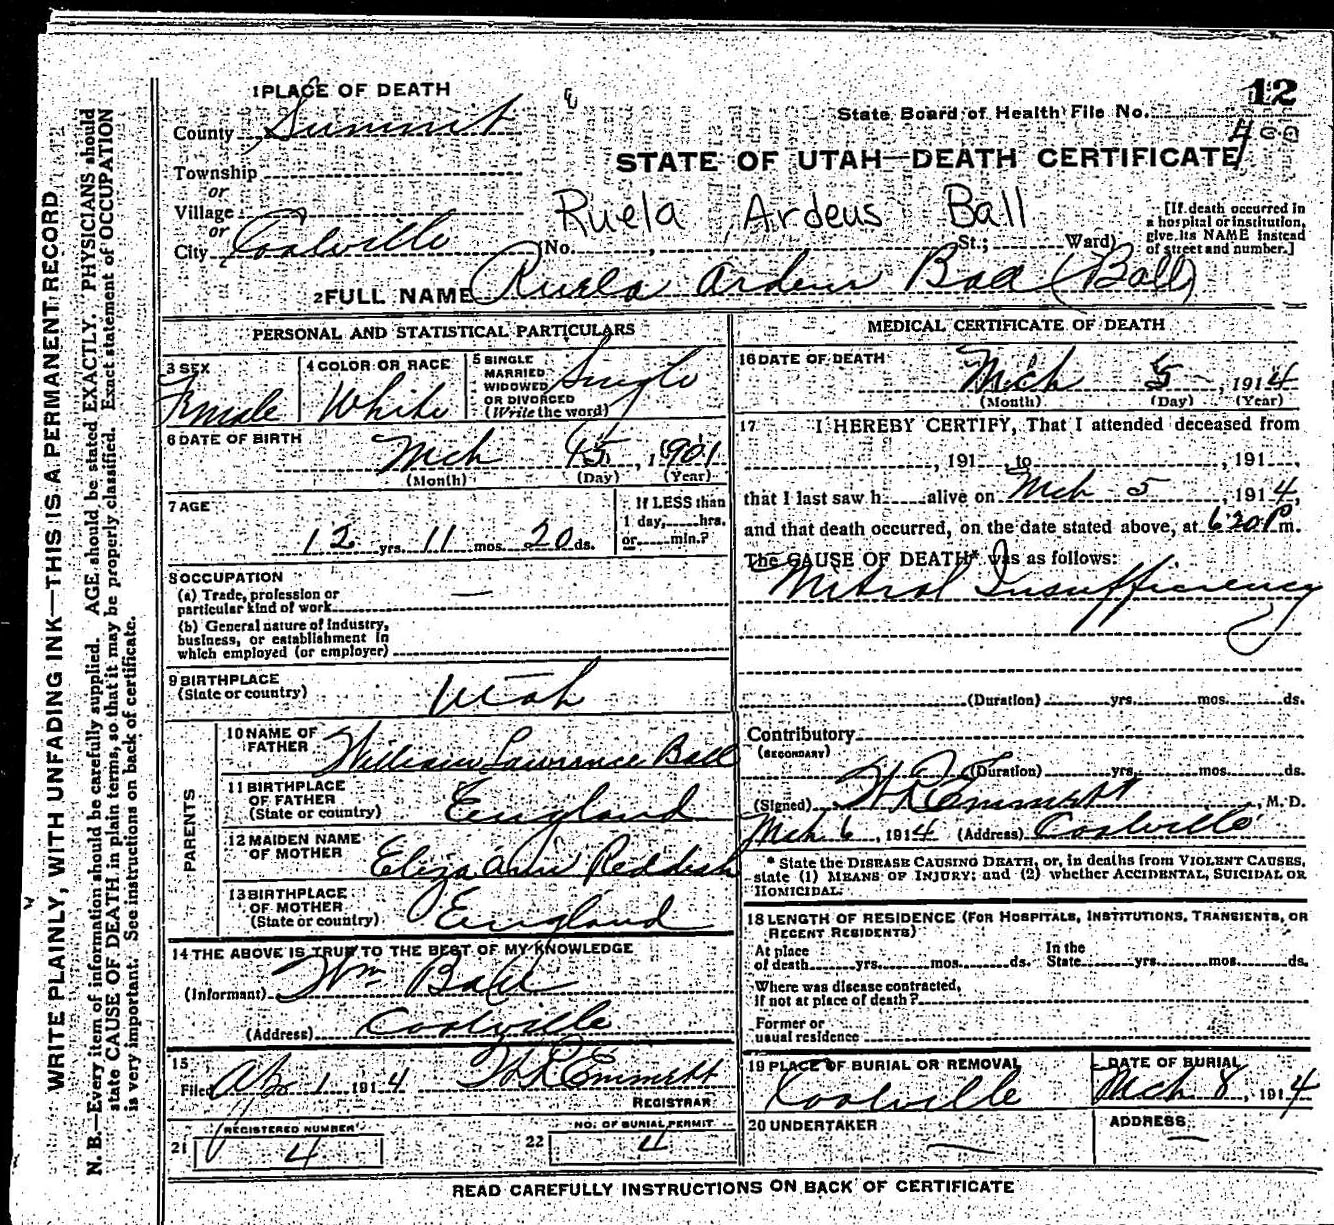 12
1 PLACE OF DEATH
State Board of Health File No.
4
County Summit
STATE OF UTAH—DEATH CERTIFICATE
Township
or
Village
or
City Coalville
Ruela Ardeus Ball
(No. , St.; Ward)
[If death occurred in
a hospital or institution,
give its NAME instead
of street and number.]
2 FULL NAME Ruela Ardeus Baa (Ball)
PERSONAL AND STATISTICAL PARTICULARS
3 SEX
Female
4 COLOR OR RACE
White
5 SINGLE
MARRIED
WIDOWED
OR DIVORCED
(Write the word)
Single
6 DATE OF BIRTH
Mch 15, 1901
(Month) (Day) (Year)
7 AGE
12 yrs. 11 mos. 20 ds.
If LESS than
1 day, hrs.
or min.?
8 OCCUPATION
(a) Trade, profession or
particular kind of work —
(b) General nature of industry,
business, or establishment in
which employed (or employer)
9 BIRTHPLACE
(State or country)
Utah
PARENTS
10 NAME OF
FATHER
William Lawrence Ball
11 BIRTHPLACE
OF FATHER
(State or country)
England
12 MAIDEN NAME
OF MOTHER
Eliza Ann Reddish
13 BIRTHPLACE
OF MOTHER
(State or country)
England
14 THE ABOVE IS TRUE TO THE BEST OF MY KNOWLEDGE
(Informant) Wm Ball
(Address) Coalville
15
Filed Ap 1 1914 W R Emmett
REGISTRAR
REGISTERED NUMBER
21 4
NO. OF BURIAL PERMIT
22 4
MEDICAL CERTIFICATE OF DEATH
16 DATE OF DEATH
Mch 5, 1914
(Month) (Day) (Year)
17 I HEREBY CERTIFY, That I attended deceased from
, 191 to , 191 ,
that I last saw h alive on Mch 5, 1914,
and that death occurred, on the date stated above, at 6 20 P m.
The CAUSE OF DEATH* was as follows:
Mitral Insufficiency
(Duration) yrs. mos. ds.
Contributory
(SECONDARY)
(Duration) yrs. mos. ds.
(Signed) W R Emmett, M. D.
Mch 6, 1914 (Address) Coalville
* State the DISEASE CAUSING DEATH, or, in deaths from VIOLENT CAUSES,
state (1) MEANS OF INJURY; and (2) whether ACCIDENTAL, SUICIDAL OR
HOMICIDAL.
18 LENGTH OF RESIDENCE (FOR HOSPITALS, INSTITUTIONS, TRANSIENTS, OR
RECENT RESIDENTS)
At place
of death yrs. mos. ds.
In the
State yrs. mos. ds.
Where was disease contracted,
if not at place of death?
Former or
usual residence
19 PLACE OF BURIAL OR REMOVAL
Coalville
DATE OF BURIAL
Mch 8, 1914
20 UNDERTAKER
—
ADDRESS
—
READ CAREFULLY INSTRUCTIONS ON BACK OF CERTIFICATE
WRITE PLAINLY, WITH UNFADING INK—THIS IS A PERMANENT RECORD
N. B.—Every item of information should be carefully supplied. AGE should be stated EXACTLY. PHYSICIANS should
state CAUSE OF DEATH in plain terms, so that it may be properly classified. Exact statement of OCCUPATION
is very important. See instructions on back of certificate.